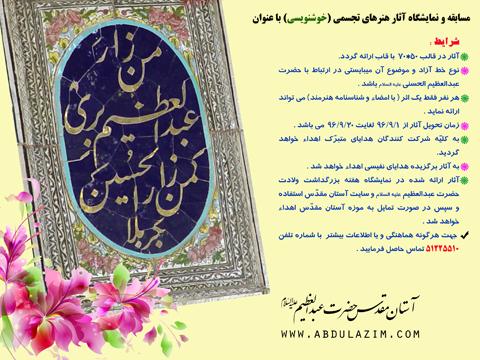 مسابقه و نمایشگاه آثار هنرهای تجسمی (خوشنویسی) با عنوان
من زار
عبدالعظیم بری
کمن زار الحسین
بکربلا
شرایط :
آثار در قالب ۵۰*۷۰ با قاب ارائه گردد.
نوع خط آزاد و موضوع آن میبایستی در ارتباط با حضرت
عبدالعظیم الحسنی علیه السلام باشد .
هر نفر فقط یک اثر ( با امضاء و شناسنامه هنرمند) می تواند
ارائه نماید .
زمان تحویل آثار از ۹۶/۹/۱ لغایت ۹۶/۹/۲۰ می باشد .
به کلیّه شرکت کنندگان هدایای متبرّک اهداء خواهد
گردید.
به آثار برگزیده هدایای نفیسی اهداء خواهد شد .
آثار ارائه شده در نمایشگاه هفته بزرگداشت ولادت
حضرت عبدالعظیم علیه السلام و سایت آستان مقدّس استفاده
و سپس در صورت تمایل به موزه آستان مقدّس اهداء
خواهد شد .
جهت هرگونه هماهنگی و یا اطلاعات بیشتر با شماره تلفن
۵۱۲۲۵۵۱۰ تماس حاصل فرمایید .
آستان مقدس حضرت عبدالعظیم علیه السلام
WWW.ABDULAZIM.COM